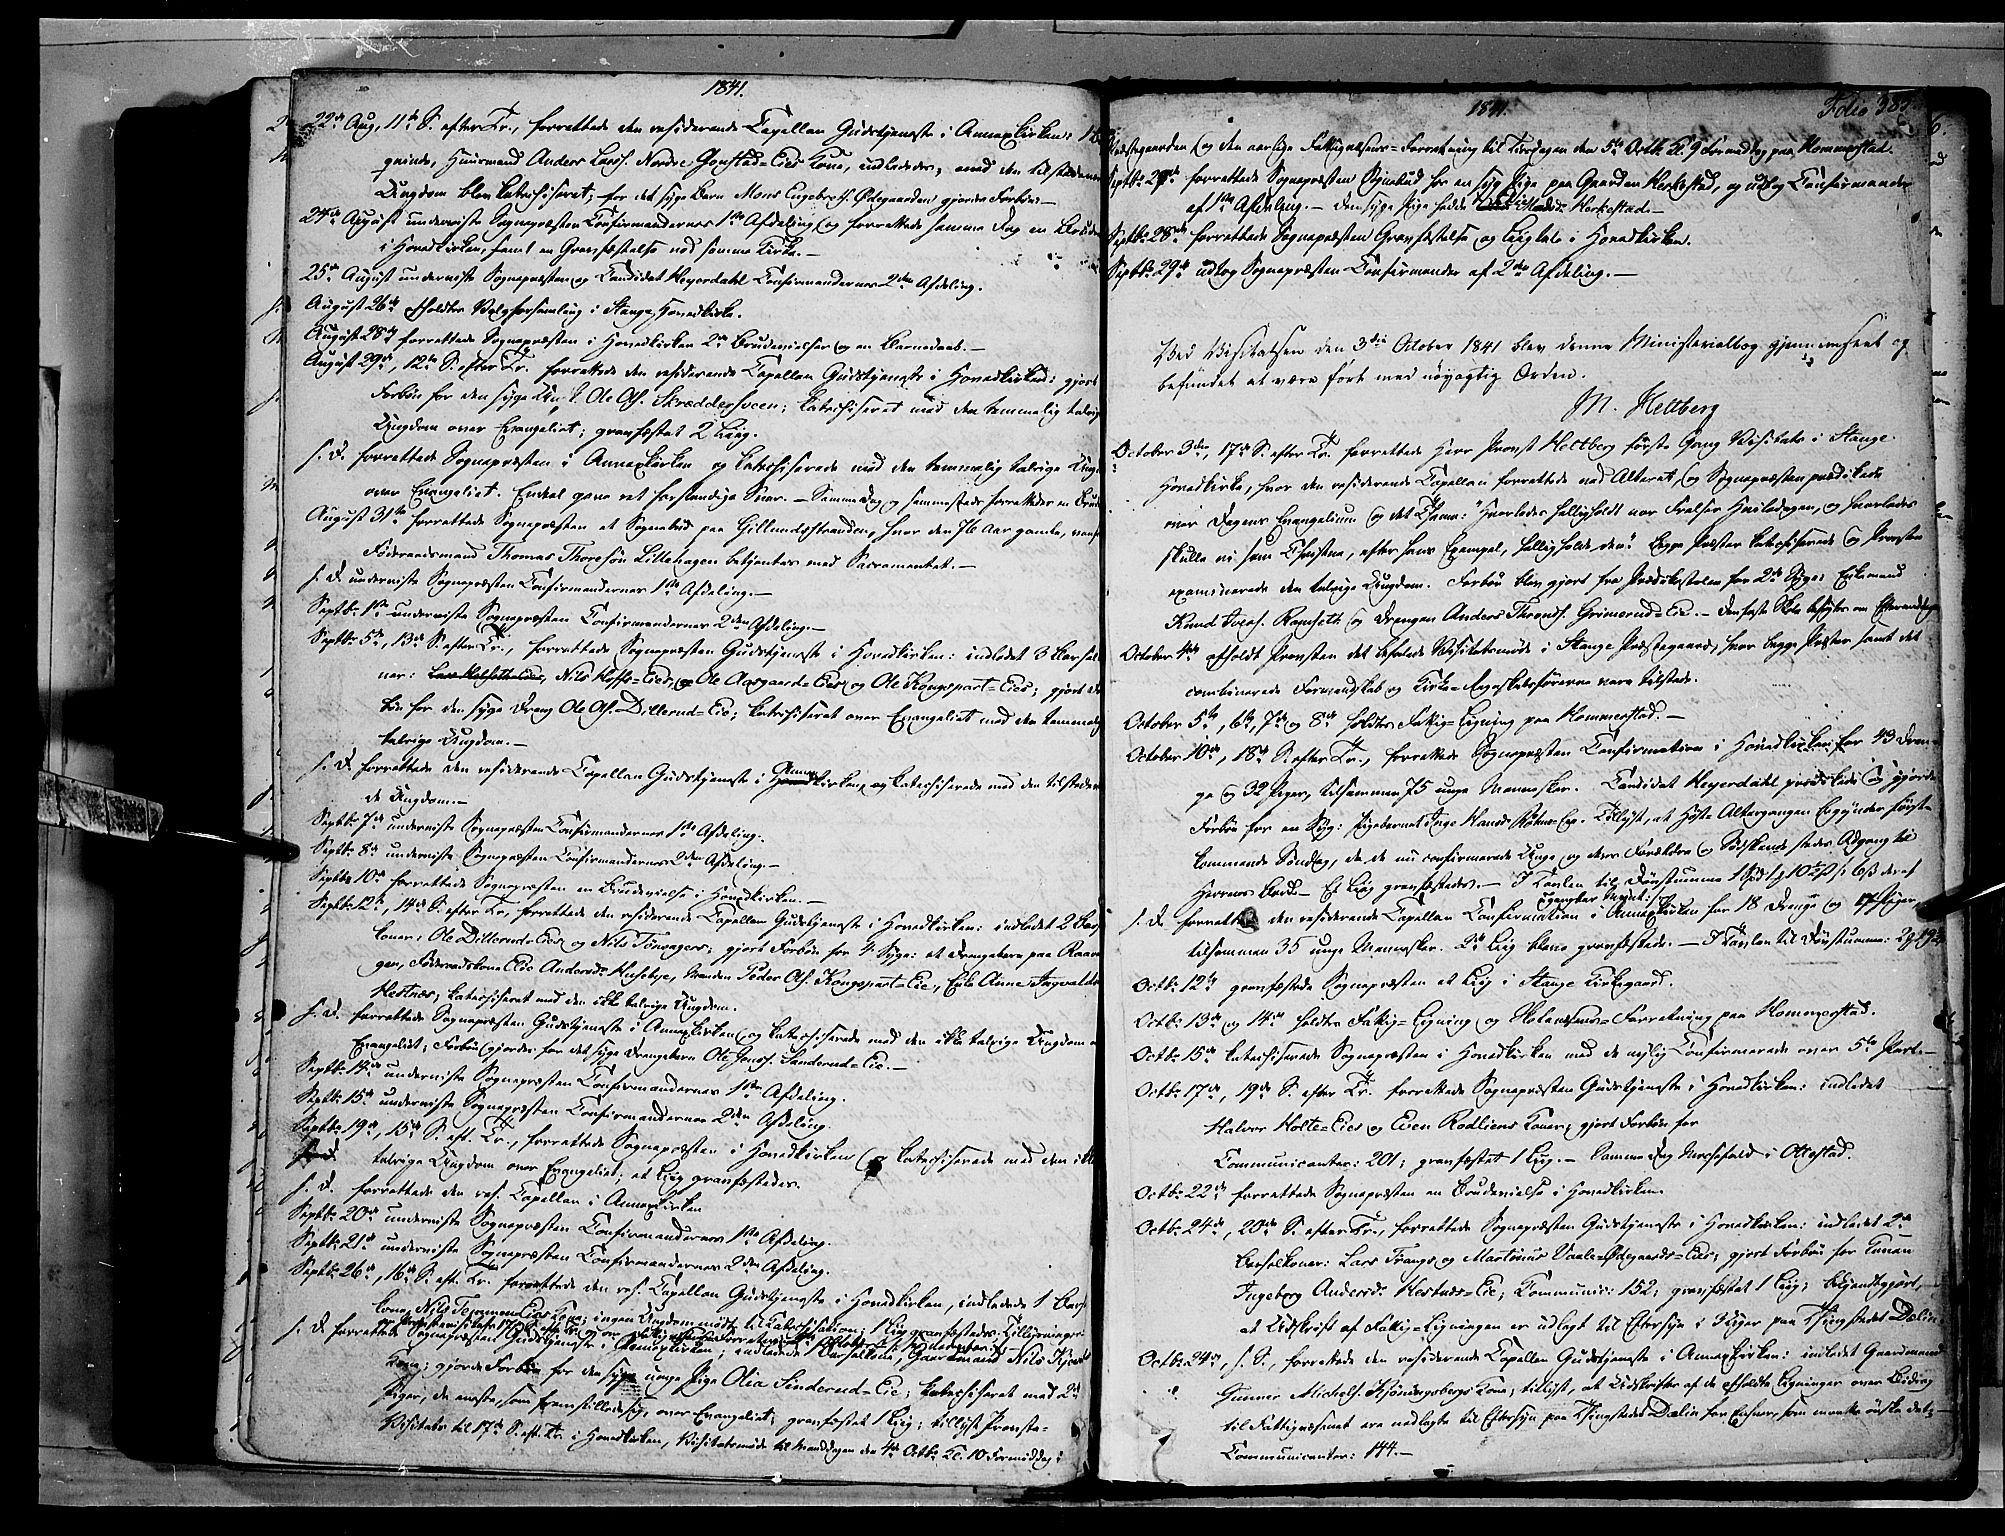 1841.
22de Aug, 11te S. efter Tr., forrettede den residerende Capellan Gudstjeneste i Annexkirken:
qvinde, Huusmand Anders Larss. Nordre Gonstad-Eies Kone, indlededes, med den tilstedeværende
Ungdom blev katechiseret; for det syge Barn Mons Engebrets. Ødegaarden gjordes Forbøn.—
24de August underviste Sognepræsten Confirmandernes 1ste Afdeling og forrettede samme Dag en Brudevielse
i Hovedkirken, samt en Gravfæstelse ved samme Kirke.—
25de August underviste Sognepræsten og Candidat Heyerdahl Confirmandernes 2den Afdeling.
August 26de afholdtes Valgforsamling i Stange Hovedkirke.
August 28de forrettede Sognepræsten i Hovedkirken 2de Brudevielser og en Barnedaab.—
August 29de, 12te S. efter Tr. forrettede den residerende Capellan Gudstjeneste i Hovedkirken: gjort
Forbøn for den syge Ole Ols. Skræddersveen; katechiseret med den temmelig talrige
Ungdom over Evangeliet; gravfæstet 2 Liig.
s. D. forrettede Sognepræsten i Annexkirken og katechiserede med den temmelig talrige Ungdom
over Evangeliet. Endeel gave ret forstandige Svar.— Samme Dag og sammesteds forrettedes en
August 31te forrettede Sognepræsten et Sognebud paa Gillundstranden, hvor den 76 Aar gamle,
Føderaadsmand Thomas Thoresøn Lillehagen betjentes med Sacramentet.—
s. D. underviste Sognepræsten Confirmandernes 1ste Afdeling.—
Septbr. 1ste underviste Sognepræsten Confirmandernes 2den Afdeling.—
Septbr. 5te, 13de S. efter Tr., forrettede Sognepræsten Gudstjeneste i Hovedkirken: indledet 3 Barsel-
ner: Nils Hoffs-Eies, Ole Aasgaards-Eies og Ole Kongsparts-Eies; gjort
bøn for den syge Dreng Ole Ols. Dillerud-Eie; katechiseret over Evangeliet med den temmelig
talrige Ungdom.—
s. D. forrettede den residerende Capellan Gudstjeneste i Annexkirken, og katechiserede med den tilstedeværen-
de Ungdom.—
Septbr. 7de underviste Sognepræsten Confirmandernes 1ste Afdeling.
Septbr. 8de underviste Sognepræsten Confirmandernes 2den Afdeling.—
Septbr. 10de forrettede Sognepræsten en Brudevielse i Hovedkirken.—
Septbr. 12te, 14de S. efter Tr., forrettede den residerende Capellan Gudstjeneste i Hovedkirken: indledet 2 Barsel-
koner: Ole Dillerud-Eies og Nils Tønsagers; gjort Forbøn for 4 Syge: et Drengebarn paa
gen, Føderaadskone Eli Andersdr. Husebye, Manden Peder Ols. Kongspart-Eie, Enke Anne Ingvaldsdr.
Hestnæs; katechiseret med den ikke talrige Ungdom.
s. D. forrettede Sognepræsten Gudstjeneste i Annexkirken og katechiserede med den ikke talrige Ungdom
Evangeliet; Forbøn gjordes for det syge Drengebarn Ole Jonss. Sanderud-Eie.—
Septbr. 14de underviste Sognepræsten Confirmandernes 1ste Afdeling.
Septbr. 15de underviste Sognepræsten Confirmandernes 2den Afdeling.
Septbr. 19de, 15de S. eft. Tr., forrettede Sognepræsten i Hovedkirken og katechiserede med den ikke
talrige Ungdom over Evangeliet; et Liig gravfæstedes.
s. D. forrettede den res. Capellan i Annexkirken
Septbr. 20de underviste Sognepræsten Confirmandernes 1ste Afdeling.
Septbr. 21de underviste Sognepræsten Confirmandernes 2den Afdeling.
Septbr. 26de, 16de S. eft. Tr. forrettede den res. Capellan Gudstjeneste i Hovedkirken, indledede 1 Barsel-
kone, Nils Kone; ingen Ungdom mødte til Catechisation; 1 Liig gravfæstedes.
s. D. forrettede Sognepræsten Gudstjeneste i Annexkirken; indledede Barselkone, Gaardmand Nils
Kone; gjorde Forbøn for den syge unge Pige Olia Sinderud-Eie; katechiseret med 2de
Piger, de eneste, som fremstillede sig, over Evangeliet; gravfæstet 1 Liig; tillyst Provste-
Visitats til 17de S. eft. Tr. i Hovedkirken, Visitatsmøde til Mandagen den 4de Octbr. Kl. 10 Formiddag i
1841.
Folio 385
Præstegaarden og den aarlige Fattigvæsens-Forretning til Tirsdagen den 5te Octbr. Kl. 9 Formiddag paa Hommerstad.
Septbr. 27de forrettede Sognepræsten Sognebud for en syg Pige paa Gaarden Herkestad, og udtog Confirmander
af 1ste Afdeling.— Den syge Pige hedte Herkestad.—
Septbr. 28de forrettede Sognepræsten Gravfæstelse og Liigtale i Hovedkirken.
Septbr. 29de udtog Sognepræsten Confirmander af 2den Afdeling.—
Ved Visitatsen den 3die October 1841 blev denne Ministerialbog gjennemseet og
befundet at være ført med nøyagtig Orden.
M. Heltberg
October 3die, 17de S. efter Tr. forrettede Herr Provst Heltberg første Gang Visitats i Stange
Hovedkirke, hvor den residerende Capellan forrettede ved Alteret og Sognepræsten prædikede
over Dagens Evangelium og det Thema: "Hvorledes helligholdt vor Frelser Hviledagen, og hvorledes
skulle vi som Christne, efter hans Exempel, helligholde den". Begge Præster katechiserede og Provsten
examinerede den talrige Ungdom. Forbøn blev gjort fra Prædikestolen for 2de Syge: Enkemand
Knud Ivers. Romseth og Drengen Anders Thronds. Grimerud-Eie.—
October 4de afholdt Provsten det befalede Visitatsmøde i Stange Præstegaard, hvor begge Præster samt det
combinerede Formandskab og Kirke-Regnskabsførerne vare tilstede.
October 5te, 6te, 7de og 8de holdtes Fattig-Ligning paa Hommerstad.—
October 10de, 18de S. efter Tr., forrettede Sognepræsten Confirmation i Hovedkirken for 43 Dren-
ge og 32 Piger, tilsammen 75 unge Mennesker. Candidat Heyerdahl prædikede og gjorde
Forbøn for en Syg: Pigebarnet Inge Hansdr. Tillyst, at Høste Altergangen begynder først-
kommende Søndag, da de nu confirmerede Unge og deres Forældre og Sødskende stedes Adgang til
Herrens Bord.— Et Liig gravfæstedes.— I Tavlen til Døvstumme
s. D. forrettede den residerende Capellan Confirmation i Annexkirken for 18 Drenge og 17 Piger,
tilsammen 35 unge Mennesker. 2de Liig bleve gravfæstede.— I Tavlen til Døvstumme:
Octbr. 12te gravfæstede Sognepræsten et Liig i Stange Kirkegaard.
Octbr. 13de og 14de holdtes Fattig-Ligning og Forretning paa Hommerstad.
Octbr. 15de katechiserede Sognepræsten i Hovedkirken med de nylig Confirmerede over 5te Part.—
Octbr. 17de, 19de S. efter Tr. forrettede Sognepræsten Gudstjeneste i Hovedkirken: indledet
Halvor Holte-Eies og Even Rødliens Koner; gjort Forbøn for
Communicanter: 201; gravfæstet 1 Liig.— Samme Dag Messefald i Ottestad.
Octbr. 22de forrettede Sognepræsten en Brudevielse i Hovedkirken.
Octbr. 24de, 20de S. efter Tr., forrettede Sognepræsten Gudstjeneste i Hovedkirken: indledet 2de
Barselkoner: Lars Frangs og Martinus Vaale-Ødegaards-Eies; gjort Forbøn for Konen
Ingeborg Andersdr. Hestnæs-Eie; Communic: 152; gravfæstet 1 Liig; bekjendtgjort,
at Udskrift af Fattig-Ligningen er udlagt til Eftersyn i Uger paa Thingstedet Dælin
Octbr. 24de, s. S., forrettede den residerende Capellan Gudstjeneste i Annexkirken: indledet Gaardmand
Gunner Michels. Kjøningsbergs Kone; tillyst, at Udskrifter af de afholdte Ligninger over Bidrag
til Fattigvæsenet ere udlagte til Eftersyn paa Thingstedet Dælin for Enhver, som maatte ønske det;
Communicanter: 144.—